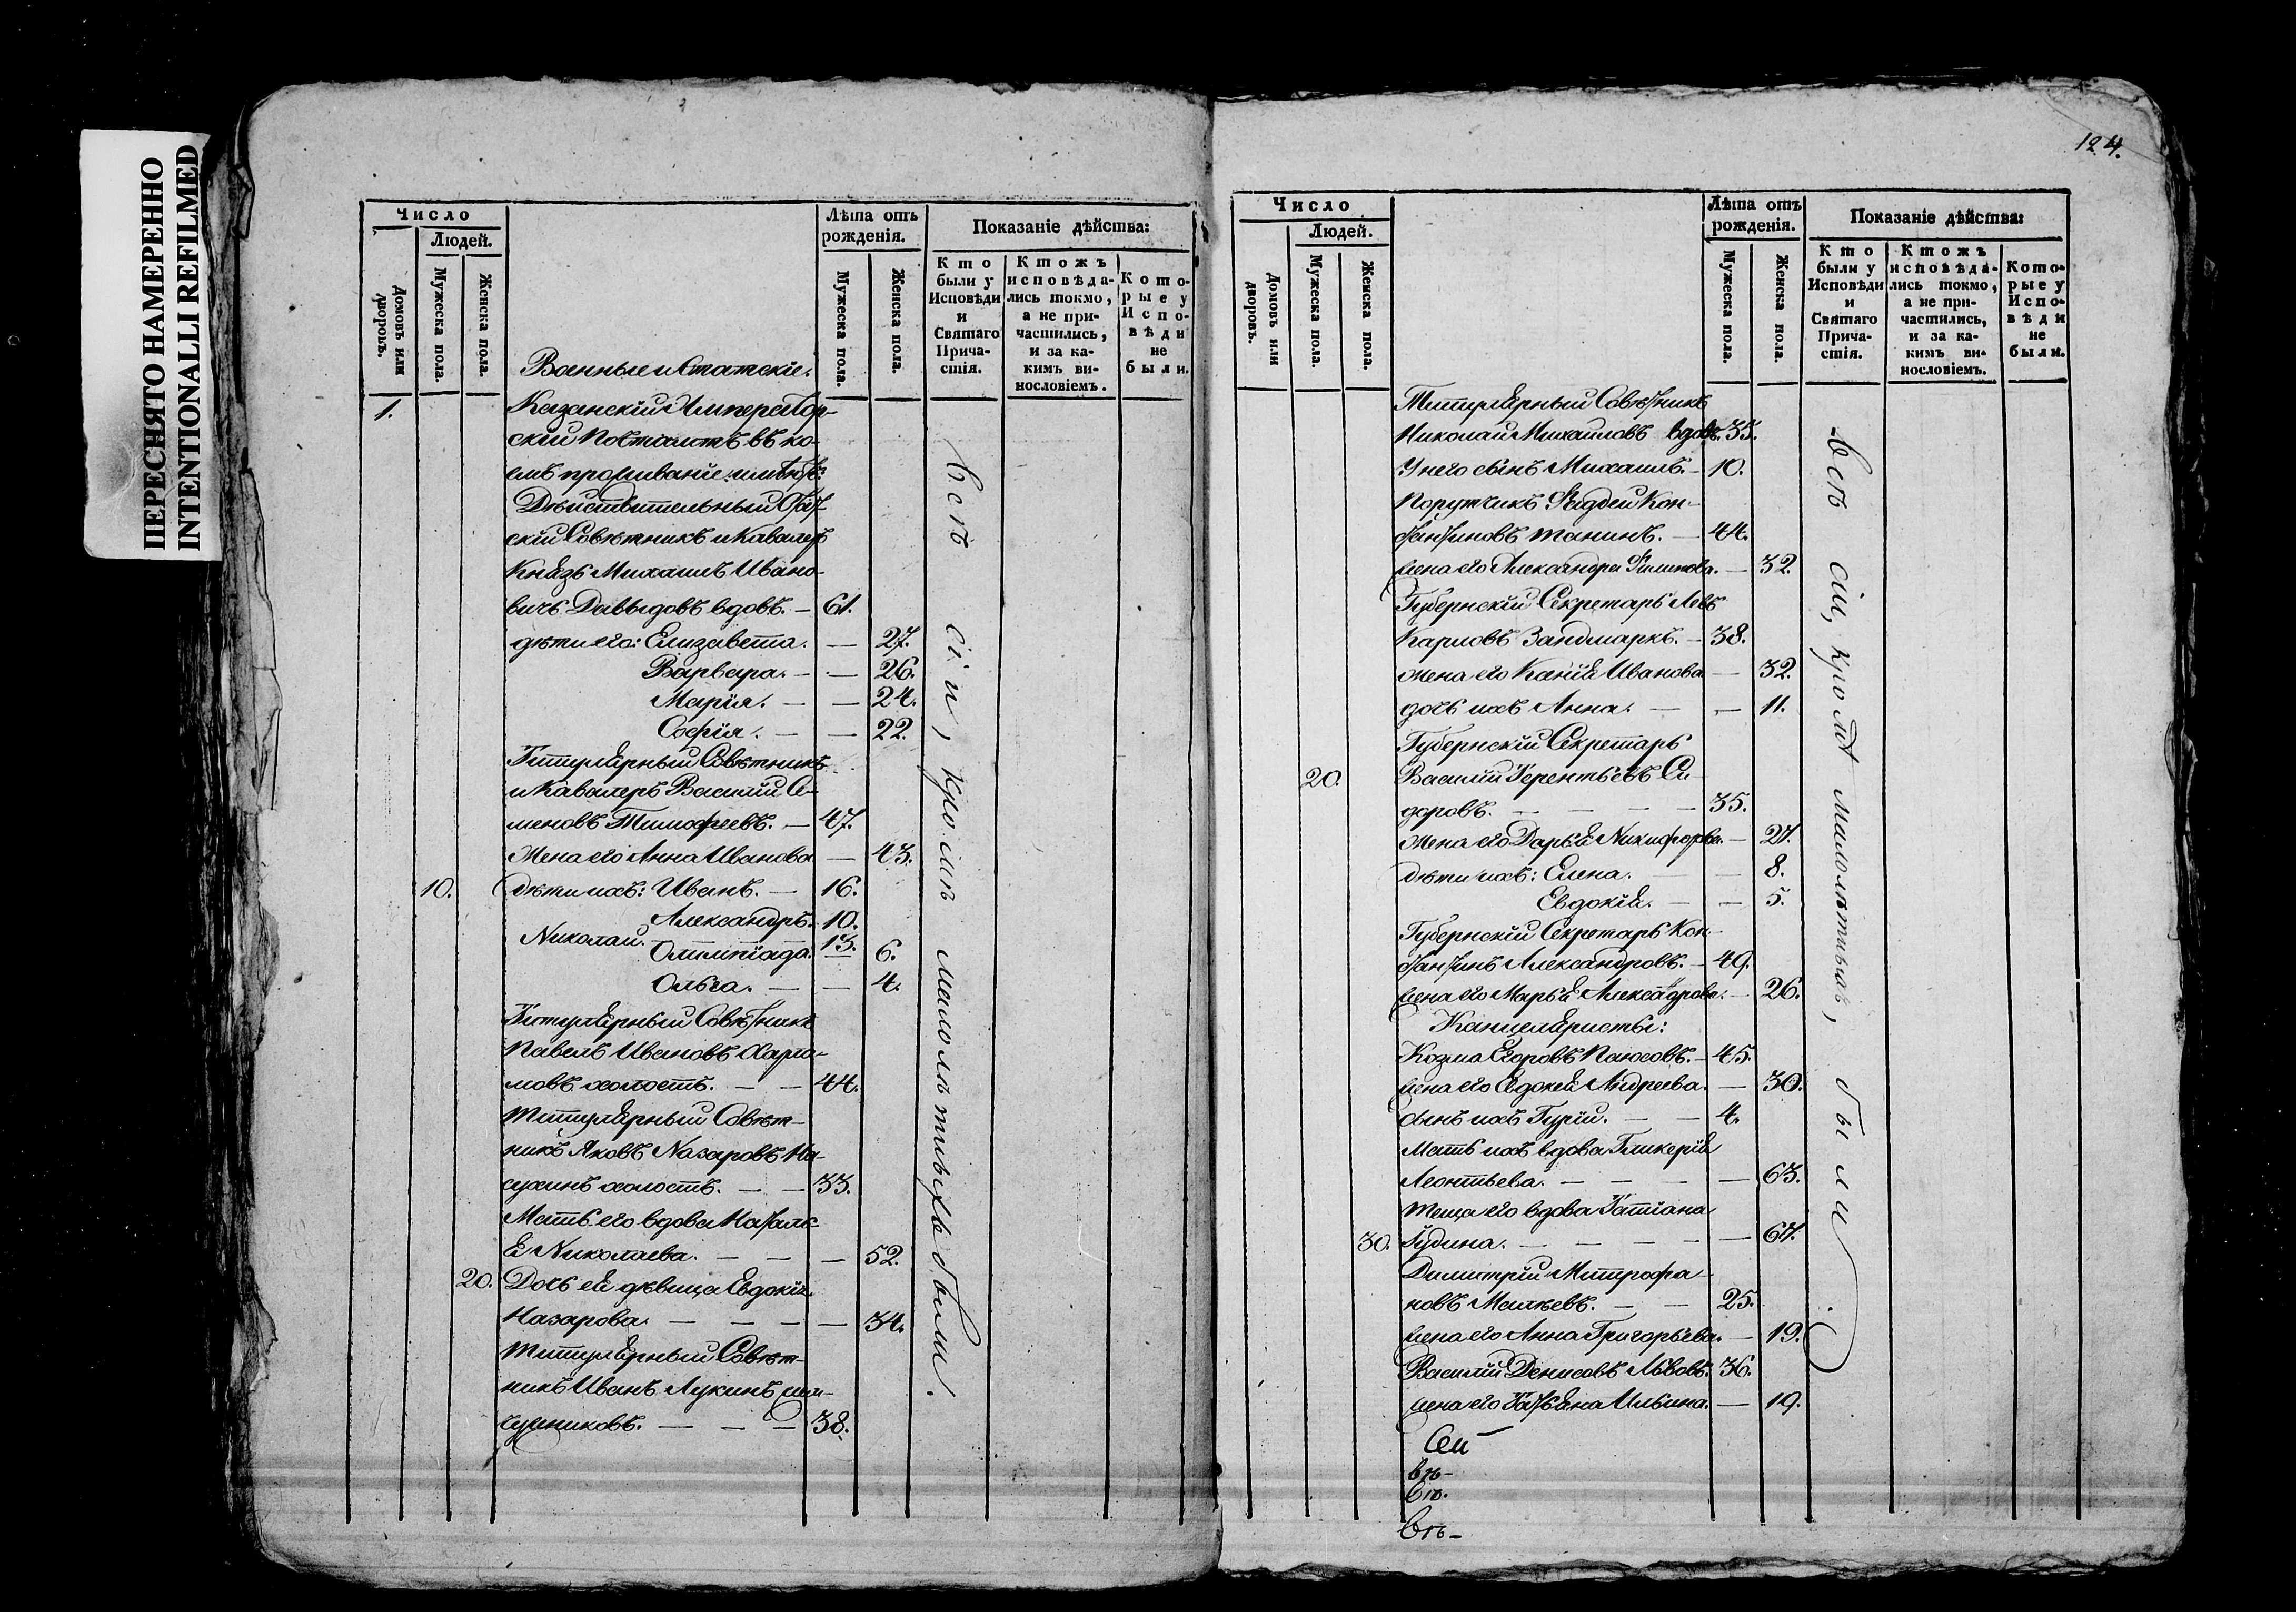 ПЕРЕСНЯТО НАМЕРЕННО
INTENTIONALLI REFILMED
Число
Людей.
Домовъ или дворовъ.
Мужеска пола.
Женска пола.
Военные и Статскіе.
Лѣта отъ рожденія.
Мужеска пола.
Женска пола.
Показаніе дѣйства:
Кто были у Исповѣди и Святаго Прича-стія.
Ктожъ исповѣда-лись токмо, а не при-частились, и за ка-кимъ ви-нословіемъ.
Кото-рые у Испо-вѣди не были.
1. Казанскій Император-
скій Почтамтъ въ ко-
емъ проживаніе имѣютъ:
Дѣйствительный Стат-
скій Совѣтникъ и Кавалеръ
Князь Михаилъ Ивано-
вичь Давыдовъ вдовъ. — 61.
дѣти его: Елизавета. — 27.
Варвара. — — 26.
Марія. — — 24.
Софія. — — 22.
Титулярный Совѣтникъ
и Кавалеръ Василій Се-
меновъ Тимофеевъ. — 47.
Жена его Анна Иванова — 43.
10. дѣти ихъ: Иванъ. — 16.
Александръ. 10.
Николай. 13.
Олимпіада. — 6.
Ольга. — — 4.
Титулярный Совѣтникъ
Павелъ Ивановъ Харла-
мовъ холостъ. — — 44.
Титулярный Совѣт-
никъ Яковъ Назаровъ На-
сухинъ холостъ. — — 33.
Мать его вдова Наталь-
я Николаева. — — — 52.
20. Дочь ея дѣвица Евдокія
Назарова. — — — — 34.
Титулярный Совѣт-
никъ Иванъ Лукинъ
— — — 38.
Всѣ сіи, кромѣ малолѣтныхъ были.
124.
Число
Людей.
Домовъ или дворовъ.
Мужеска пола.
Женска пола.
Лѣта отъ рожденія.
Мужеска пола.
Женска пола.
Показаніе дѣйства:
Кто были у Исповѣди и Святаго Прича-стія.
Ктожъ исповѣда-лись токмо, а не при-частились, и за ка-кимъ ви-нословіемъ.
Кото-рые у Испо-вѣди не были.
Титулярный Совѣтникъ
Николай Михайловъ вдовъ. 35.
У него сынъ Михаилъ. — 10.
Порутчикъ Фаддей Кон-
стантиновъ Танинъ. — 44.
жена его Александра Филипова. — 32.
Губернскій Секретарь Левъ
Карловъ Зандмаркъ. — 38.
жена его Ксанія Иванова — 32.
дочь ихъ Анна. — — 11.
Губернскій Секретарь
20. Василій Терентьевъ Си-
доровъ. — — — — 35.
жена его Дарья Никифорова. — 27.
дѣти ихъ: Елена. — — 8.
Евдокія. — — 5.
Губернскій Секретарь Кон-
стантинъ Александровъ. — 49.
жена его Марья Александрова. — 26.
Канцеляристы:
Козма Егоровъ Паюсовъ. — 45.
жена его Евдокея Андреева. — 30.
сынъ ихъ Гурій. — — 4.
Мать ихъ вдова Гликерія
Леонтьева. — — — — 63.
Теща его вдова Татіана
30. Юдина. — — — — — 67.
Димитрій Митрофа-
новъ Матѣевъ. — — 25.
жена его Анна Григорьева. — 19.
Василій Денисовъ Львовъ. 36.
жена его Татьяна Ильина. — 19.
вѣ-
вѣ.
вѣ-
всѣ сіи, кромѣ малолѣтныхъ, были.